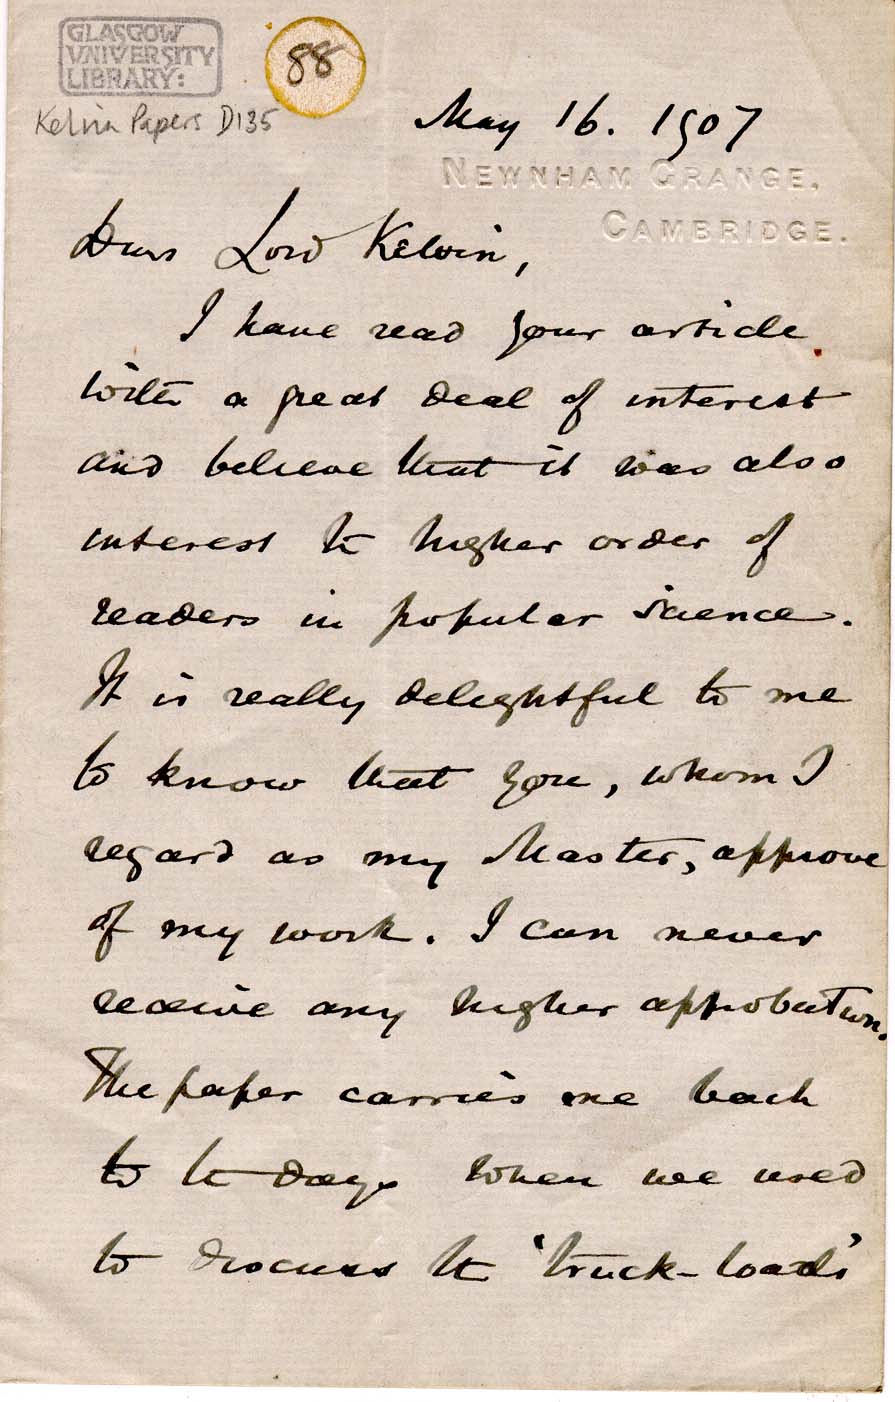 GLASGOW
UNIVERSITY
LIBRARY:
88
Kelvin Papers D135
May 16. 1907
NEWNHAM GRANGE,
CAMBRIDGE.
Dear Lord Kelvin,
I have read your article
with a great deal of interest
and believe that it was also
interest the higher order of
readers in popular science.
It is really delightful to me
to know that you, whom I
regard as my Master, approve
of my work. I can never
receive any higher approbation.
The paper carries me back
to the days when we used
to discuss the 'truck-loads'